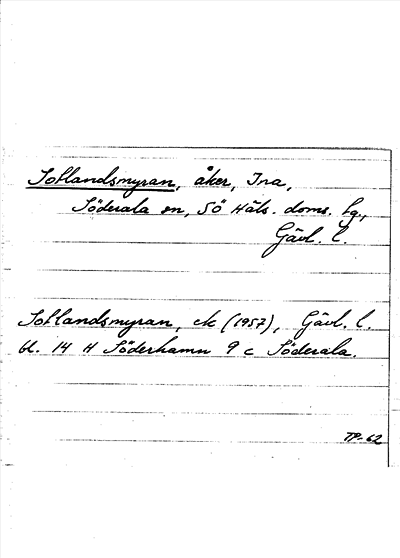 Sotlandsmyran, åker, Ina,
Söderala sn, Sö Häls. doms. tg,
Gävl. l.
Sotlandsmyran, ek (1957), Gävl. l.
bl. 14 H Söderhamn 9 c Söderala.
TP-62